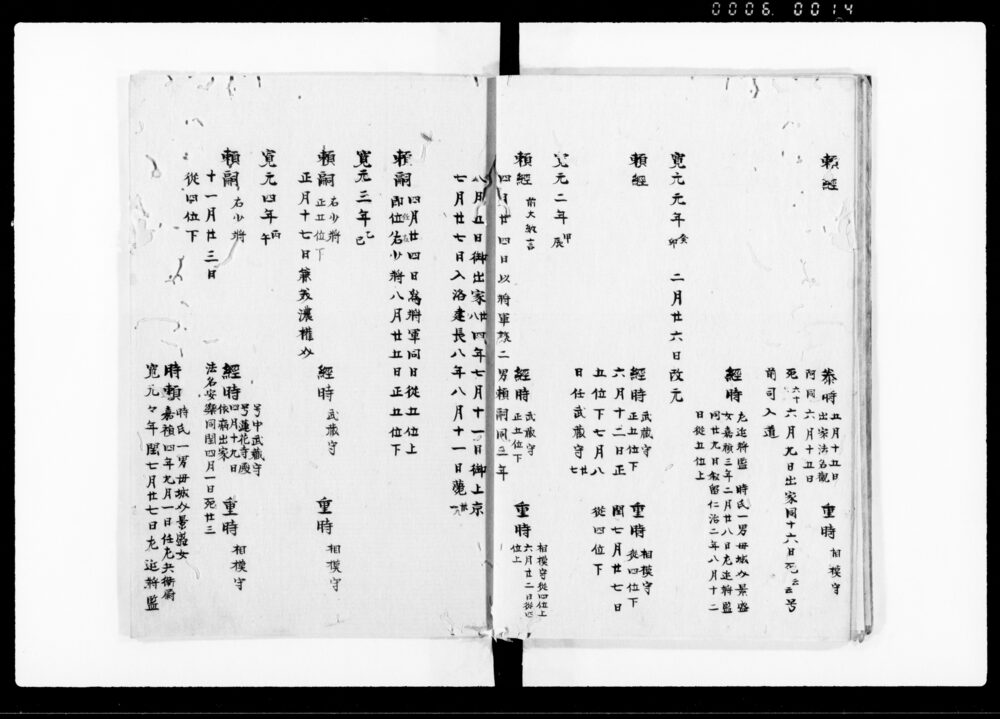 0006.0014
賴經
泰時 五月十五日
出家法名觀
阿同六月十五日
死六十 六月九日出家同十六日死云云号
前司入道
重時 相模守
經時 左近將監 時氏一男母城介景盛
女嘉禎三年二月廿八日左近將監
同廿九日叙留仁治二年八月十二
日從五位上
寛元元年癸卯 二月廿六日改元
賴經
經時 武藏守
正五位下
六月十二日正
五位下七月八
日任武藏守
重時 相模守
從四位下
閏七月廿七日
從四位下
元二年甲辰
賴經 前大納言
四月廿四日以將軍 二男賴嗣同 年
八月五日御出家 四年七月十一日御上京
七月廿七日入洛建長八年八月十一日薨
經時 武藏守
正五位下
重時 相模守從四位上
六月廿二日從
位上
賴嗣 四月廿四日為將軍同日從五位上
即位右少將八月廿五日正五位下
寛元三年乙巳
賴嗣 右少將
正五位下
正月十七日兼美濃權介
經時 武藏守
重時 相模守
寛元四年丙午
賴嗣 右少將
十一月廿三日
從四位下
經時 号中武藏守
号蓮花寺殿
四月十九日
依病出家
法名安樂同閏四月一日死廿三
重時 相模守
時賴 時氏一男母城介景盛女
嘉禎四年九月一日任左兵衛尉
寛元々年閏七月廿七日左近將監